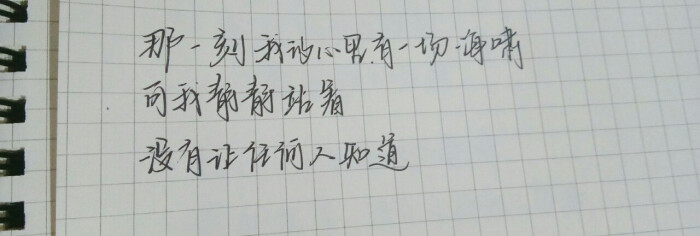 那一刻我的心里有一场海啸
而我静静站着
没有让任何人知道